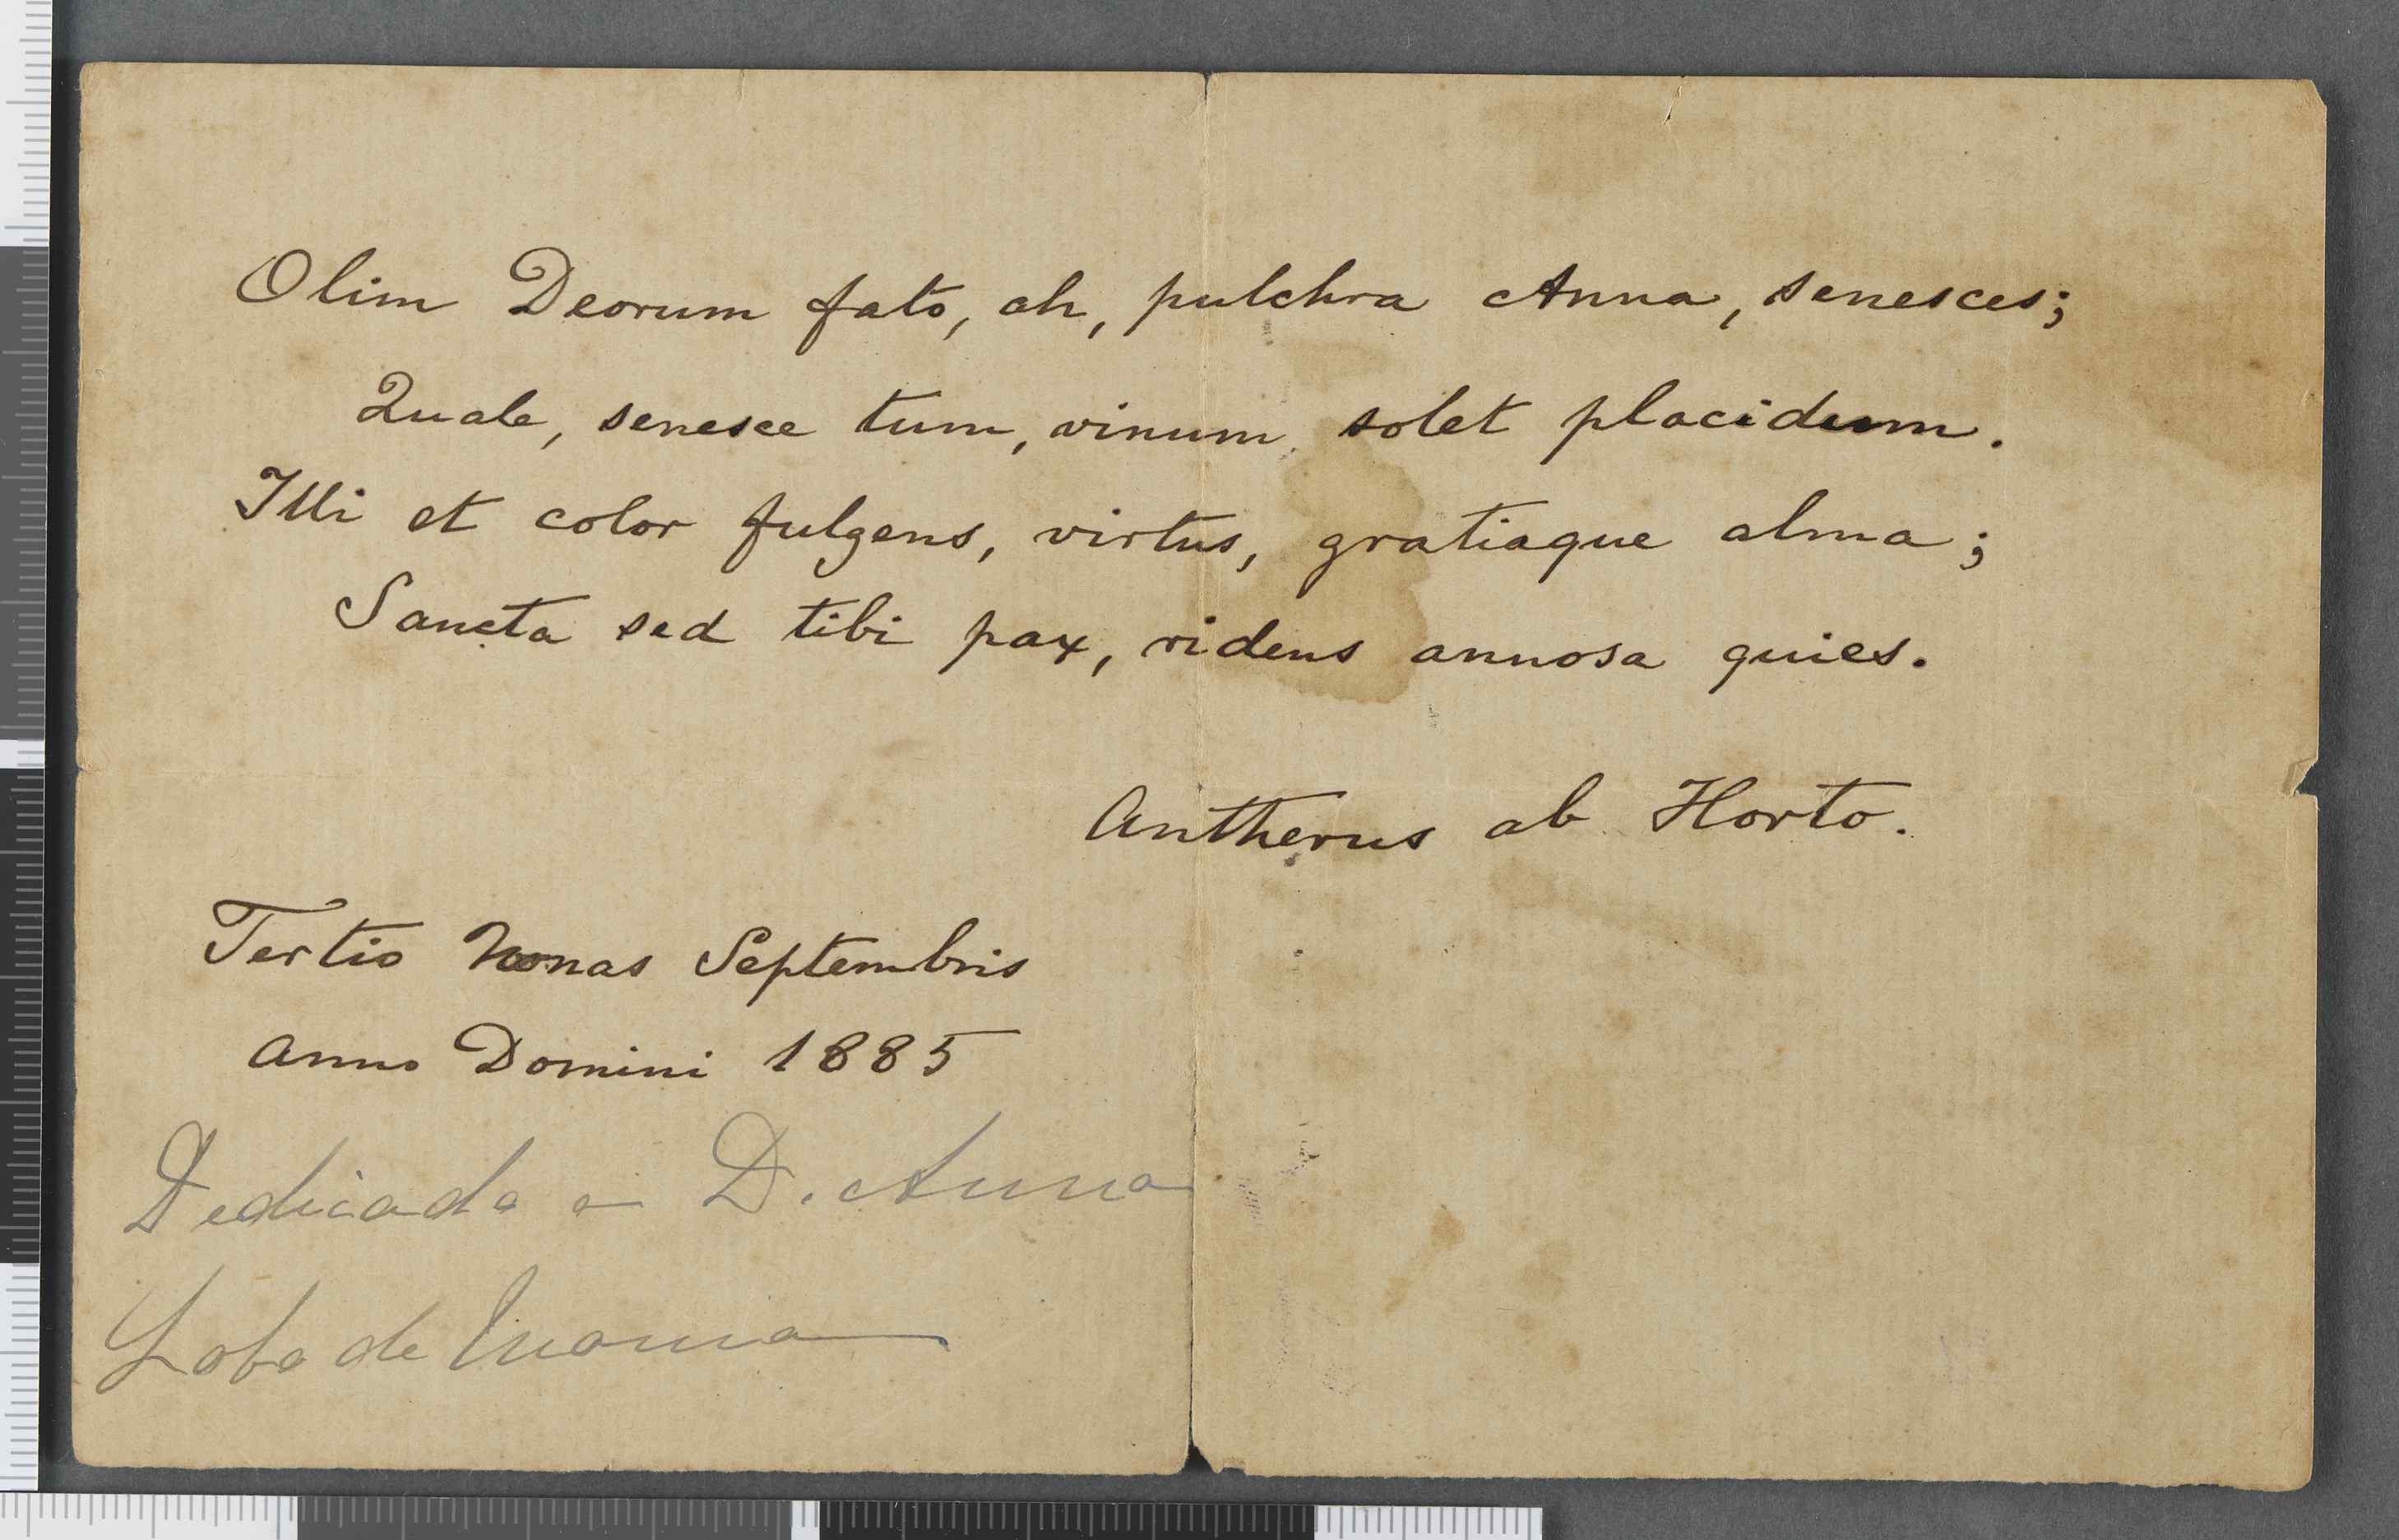 Olim Deorum fato, ah, pulchra Anna, senesces;
Quale, senesce tum, vinum solet placidum.
Illi et color fulgens, virtus, gratiaque alma;
Sancta sed tibi pax, ridens annosa quies.
Antherus ab Horto.
Tertio Nonas Septembris
Anno Domini 1885
Dedicada a D. Anna
Lobo de